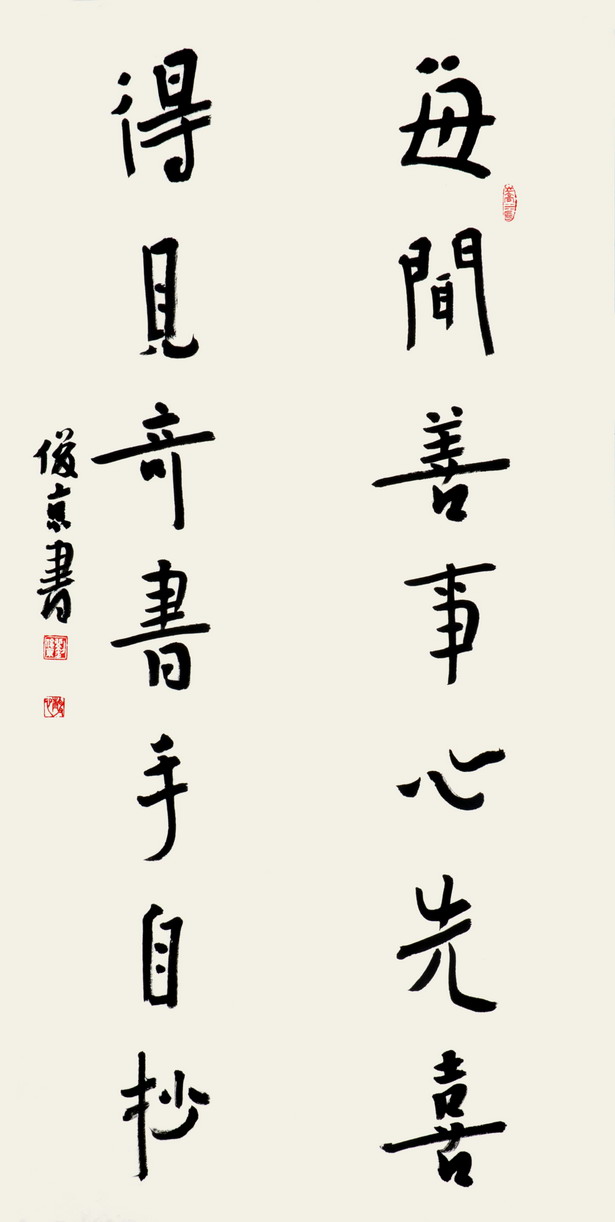 每聞善事心先喜
得見奇書手自抄
俊京書